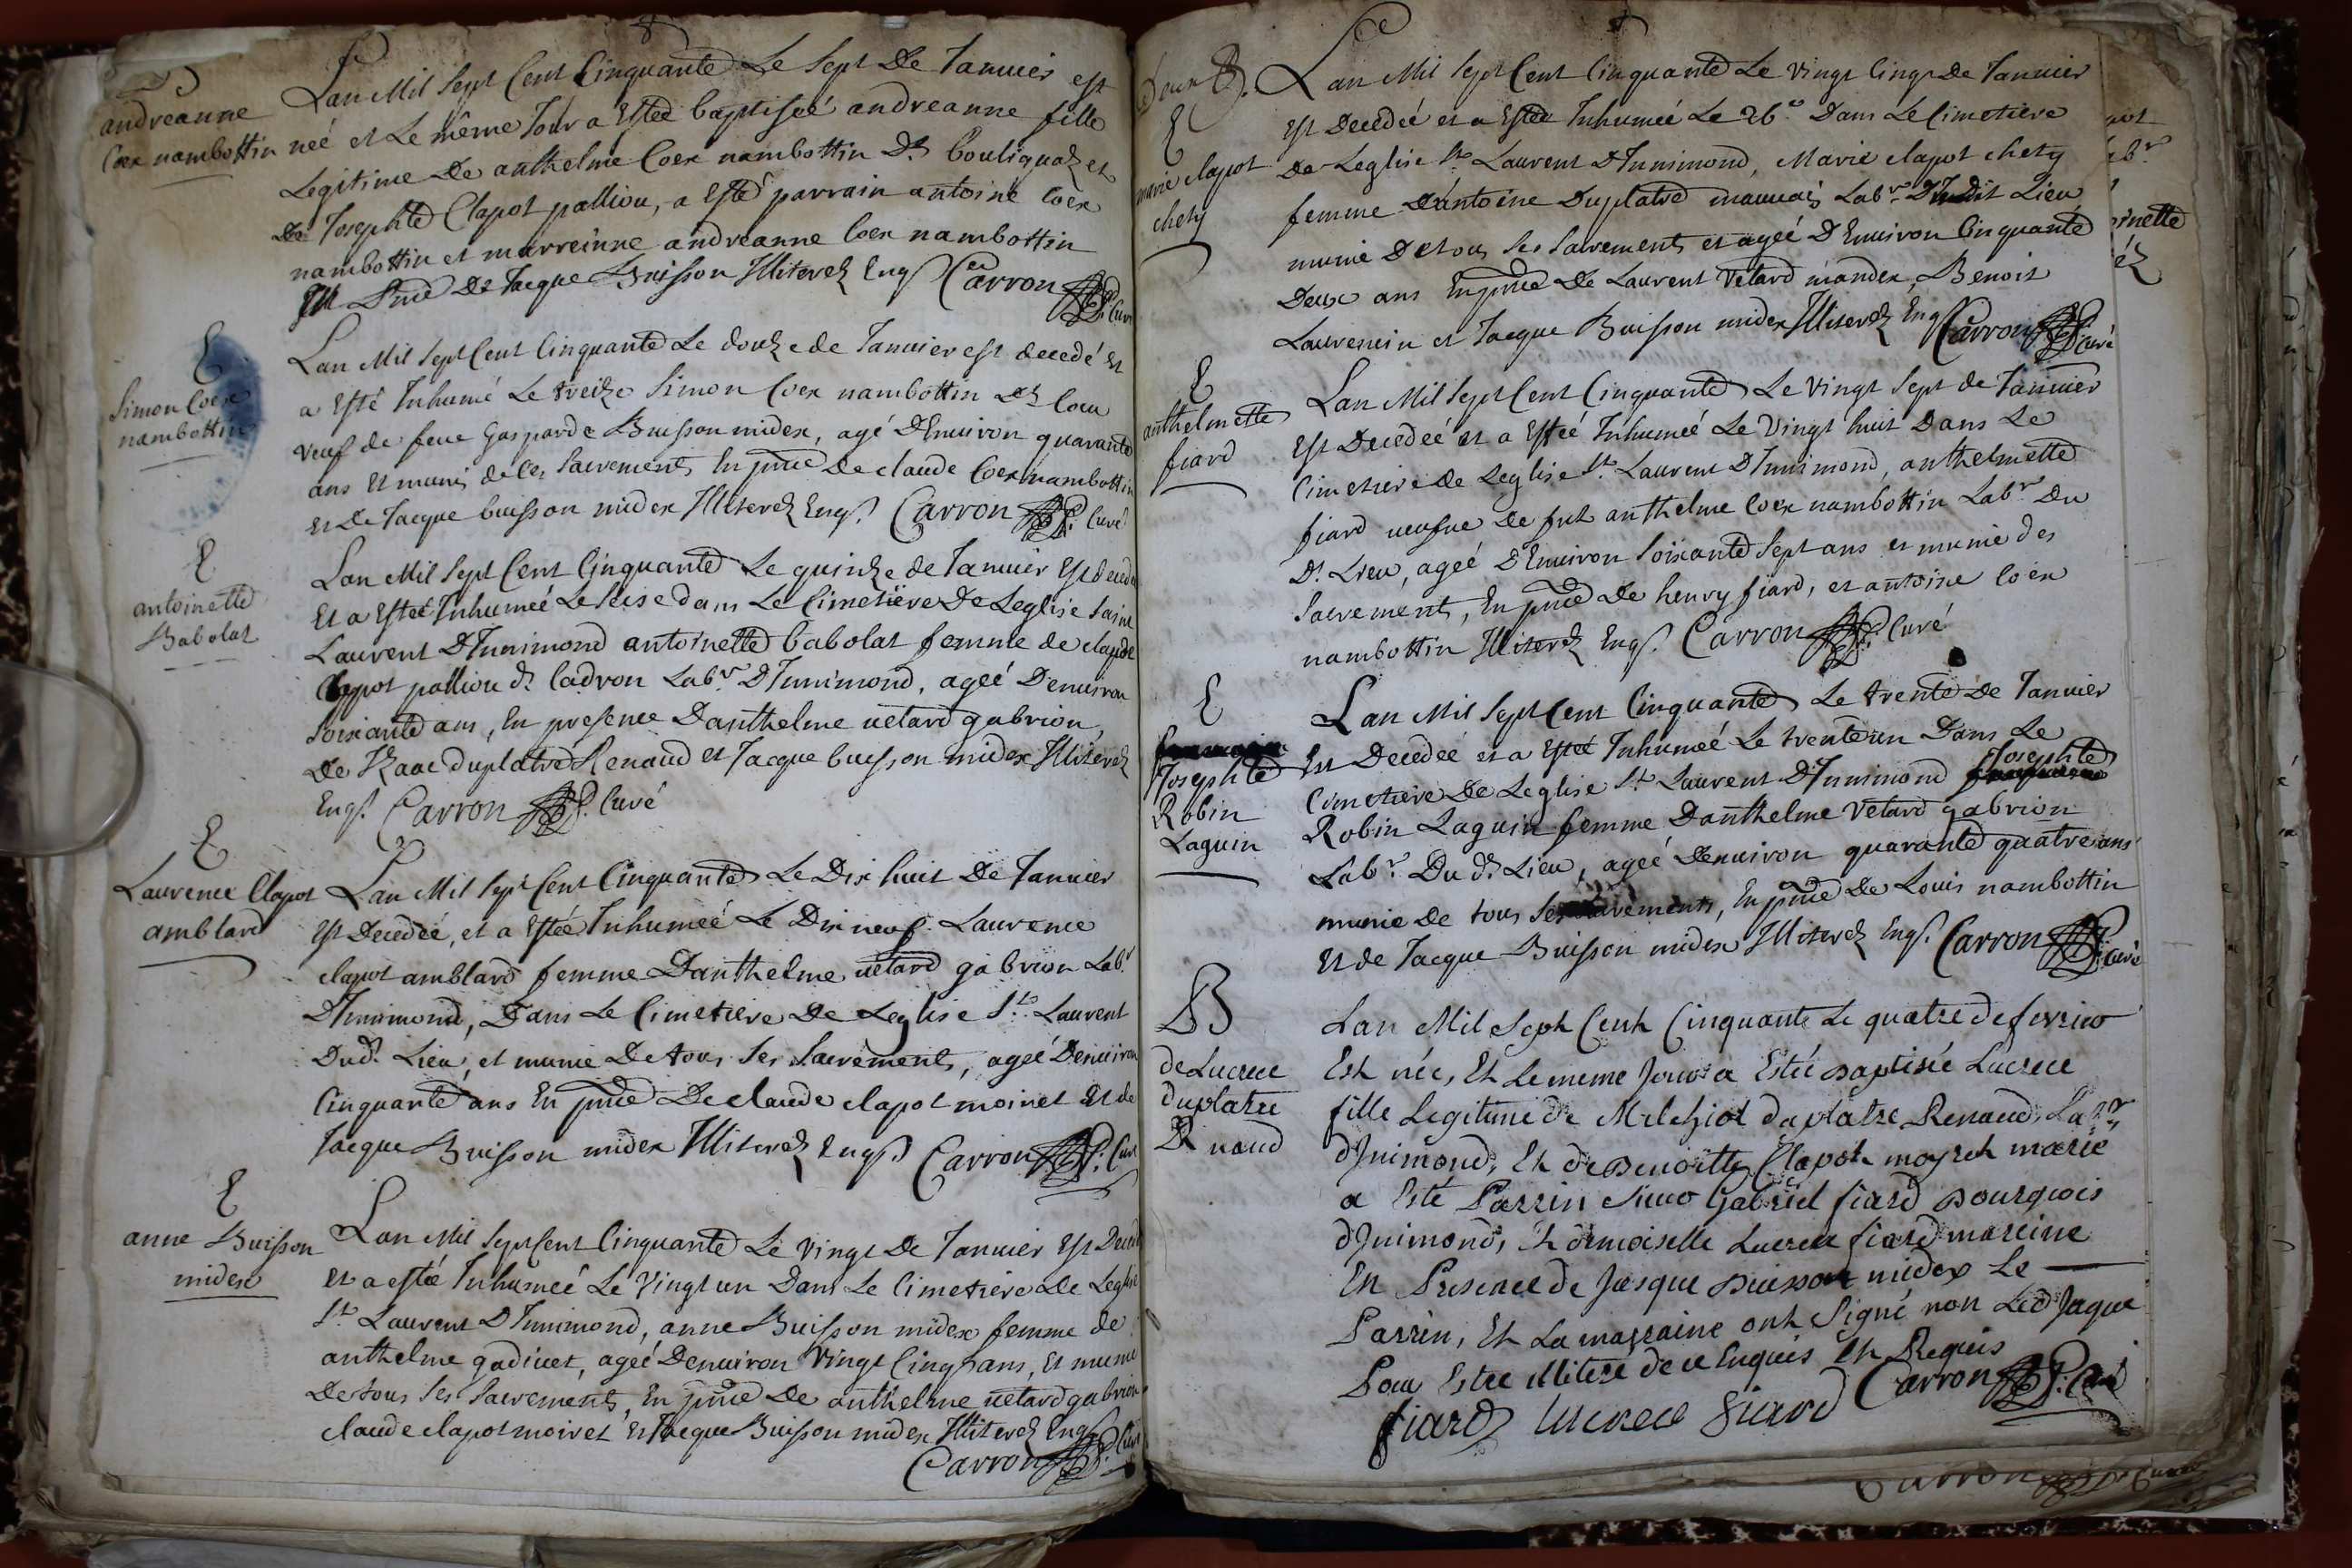 andreanne
Coex nambottin
Lan Mil Sept Cent Cinquante Le Sept De Januier est
neé et Le même Jour a Estée baptiseé andreanne fille
Legitime De anthelme Coex nambottin Dt bouliquat et
De Josephte Clapot palliou, a Esté parrain antoine Coex
nambottin et marreinne andreanne Coex nambottin
En pnce De Jacque Buisson Illiterez Enqs Carron Curé
Simon Coex
nambottin
Lan Mil Sept Cent Cinquante Le douze de Januier est decedé et
a Esté Inhumé Le treize Simon Coex nambottin dt Cou
veuf de feue Gasparde Buisson midex, agé D'Enuiron quarante
ans Et munis de ses Sacrements En pnce De claude Coex nambottin
et De Jacque buisson midex Illiterez Enqs. Carron Curé
antoinette
Babolat
Lan Mil Sept Cent Cinquante Le quinze de Januier Est decedeé
Et a Estée Inhumeé Le Seise dans Le Cimetiere De Leglise Saint
Laurent D'Innimond antoinette babolat femme de claude
Clapot palliou dt Cadron Labr. D'Innimond, ageé D'enuiron
Soixante ans, En presence D'anthelme uetard gabrion,
De Izaac duplatre Renaud et Jacque buisson midex Illiterez
Enqs. Carron Curé
Laurence Clapot
amblard
Lan Mil Sept Cent Cinquante Le Dix huit De Januier
Est Decedeé, et a Estée Inhumeé Le Dix neuf. Laurence
clapot amblard femme D'anthelme uetard gabrion Labr
D'Innimond, Dans Le Cimetiere De Leglise St. Laurent
Dudt Lieu, et munie De tous Ses Sacrements, ageé D'enuiron
Cinquante ans En pnce De claude clapot moiret Et de
Jacque Buisson midex Illiterez Enqs Carron Curé
anne Buisson
midex
Lan Mil Sept Cent Cinquante Le vingt De Januier Est Decedeé
Et a estée Inhumeé Le Vingt un Dans Le Cimetiere de Leglise
St. Laurent D'Innimond, anne Buisson midex femme de
anthelme gadiuet, ageé D'enuiron Vingt Cinq ans, Et munie
De tous Ses Sacrements, En pnce De anthelme uetard gabrion
claude clapot moiret Et Jacque Buisson midex Illiterez Enqs
Carron Curé
marie clapot
chety
Lan Mil Sept Cent Cinquante Le vingt Cinqs De Januier
Est Decedeé et a Estée Inhumeé Le 26e Dans Le Cimetiere
De Leglise St. Laurent D'Innimond, Marie clapot chety
femme d'antoine Duplatre mauuais Labr. Dudit Lieu
munie De tous Ses Sacrements et ageé D'Enuiron Cinquante
Deux ans En pnce De Laurent Vetard mandex, Benoit
Laurencin et Jacque Buisson midex Illiterez Enqs Carron Curé
anthelmette
fiard
Lan Mil Sept Cent Cinquante Le Vingt Sept de Januier
Est Decedeé et a Estéé Inhumeé Le Vingt huit Dans Le
Cimetiere de Leglise St. Laurent D'Innimond, anthelmette
fiard ueufue De fut anthelme Coex nambottin Labr. Du
Dt. Lieu, ageé D'Enuiron Soixante Sept ans et munie des
Sacrements, En pnce De henry fiard, et antoine Coex
nambottin Illiterez Enqs. Carron Curé
Josephte
Robin
Laguin
Lan Mil Sept Cent Cinquante Le trente De Januier
Est Decedeé et a Esteé Inhumeé Le trente un Dans Le
Cimetiere De Leglise St. Laurent D'Innimond Josephte
Robin Laguin femme D'anthelme Vetard gabrion
Labr. Du dt. Lieu, ageé D'enuiron quarante quatre ans
munie De tous Ses Sacrements, En pnce De Louis nambottin
Et de Jacque Buisson midex Illiterez Enqs. Carron Curé
B
de Lucrece
duplatre
Lan Mil Sept Cent Cinquante Le quatre de fevrier
Est née, Et Le meme Jour a Estée Baptisée Lucrece
fille Legitime de Melchiot duplatre Renaud, Labr.
d'Inimond, Et de Benoitte Clapot moyret marié
a Esté Parrin Sieur Gabriel fiard Bourgeois
d'Inimond, Et demoiselle Lucrece fiard mareine
En Presence de Jacque Buisson midex Le
Parrin, Et La marraine ont Signé non Led Jaque
Pour Estre illitere de ce Enquis Et Requis
fiard Lucrece fiard Carron Curé